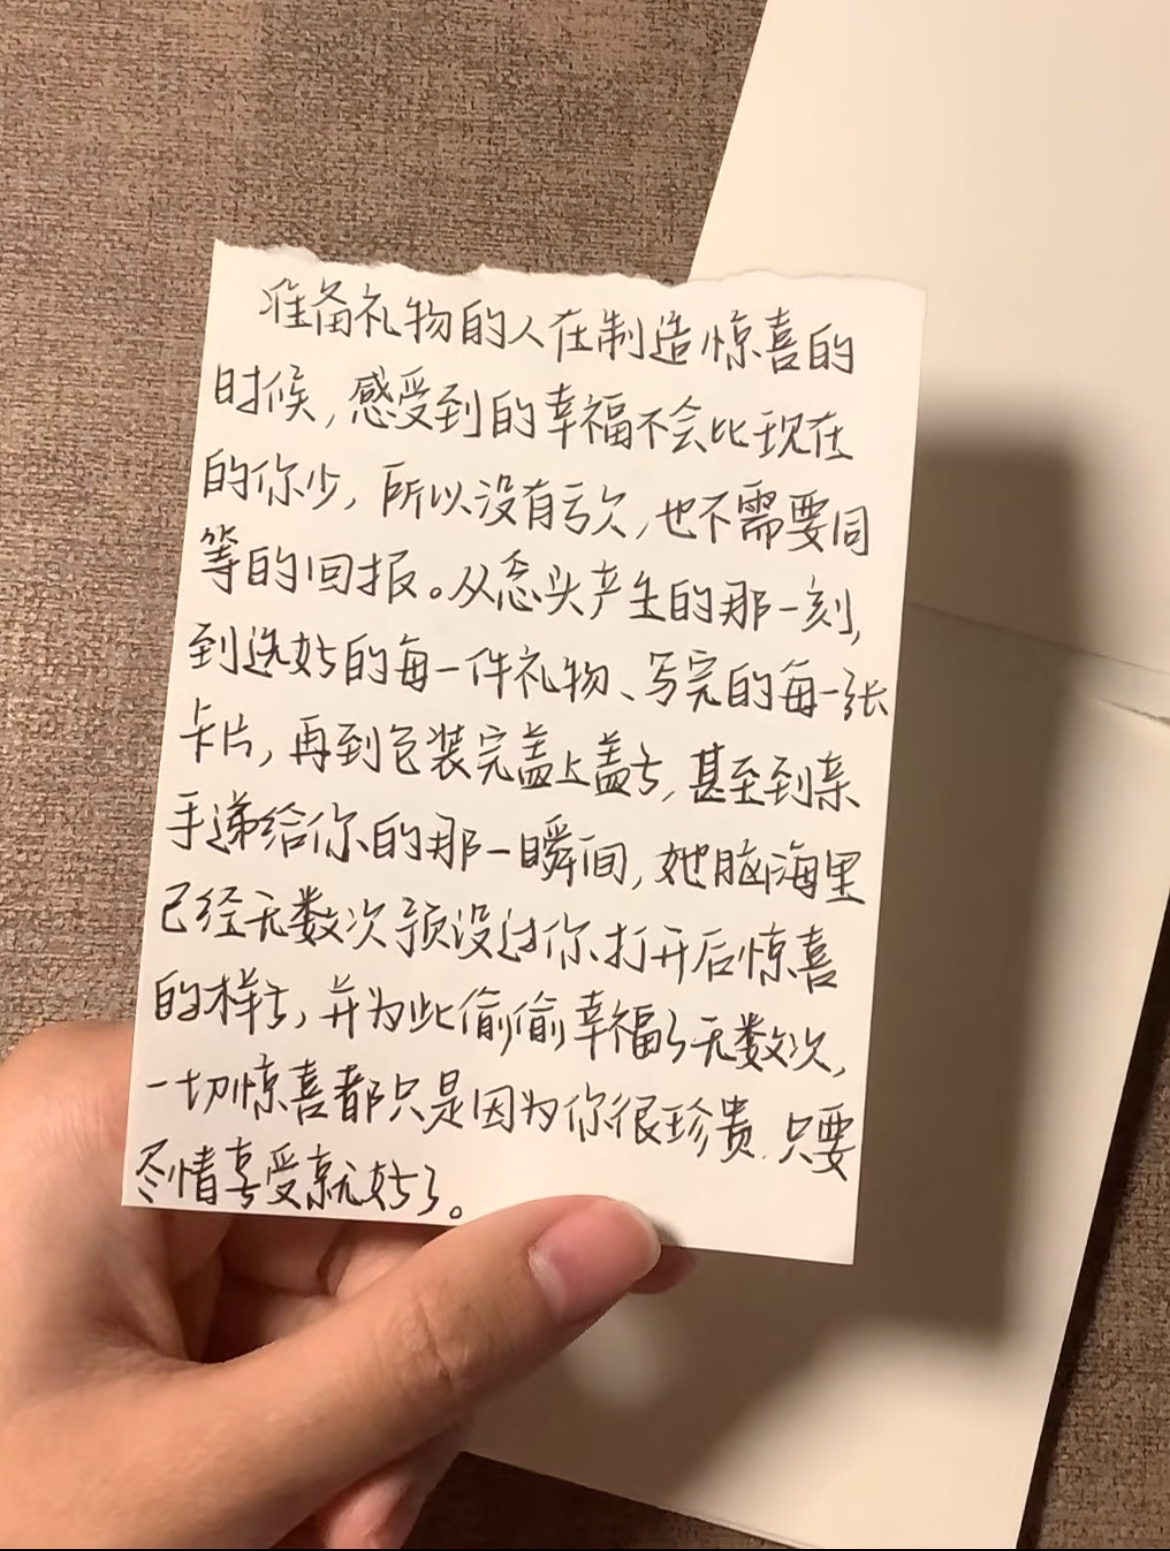 准备礼物的人在制造惊喜的
时候,感受到的幸福不会比现在
的你少,所以没有亏欠,也不需要同
等的回报。从念头产生的那一刻,
到选好的每一件礼物、写完的每一张
卡片,再到包装完盖上盖子,甚至到亲
手递给你的那一瞬间,她脑海里
已经无数次预设过你打开后惊喜
的样子,并为此偷偷幸福了无数次,
一切惊喜都只是因为你很珍贵.只要
尽情享受就好了。